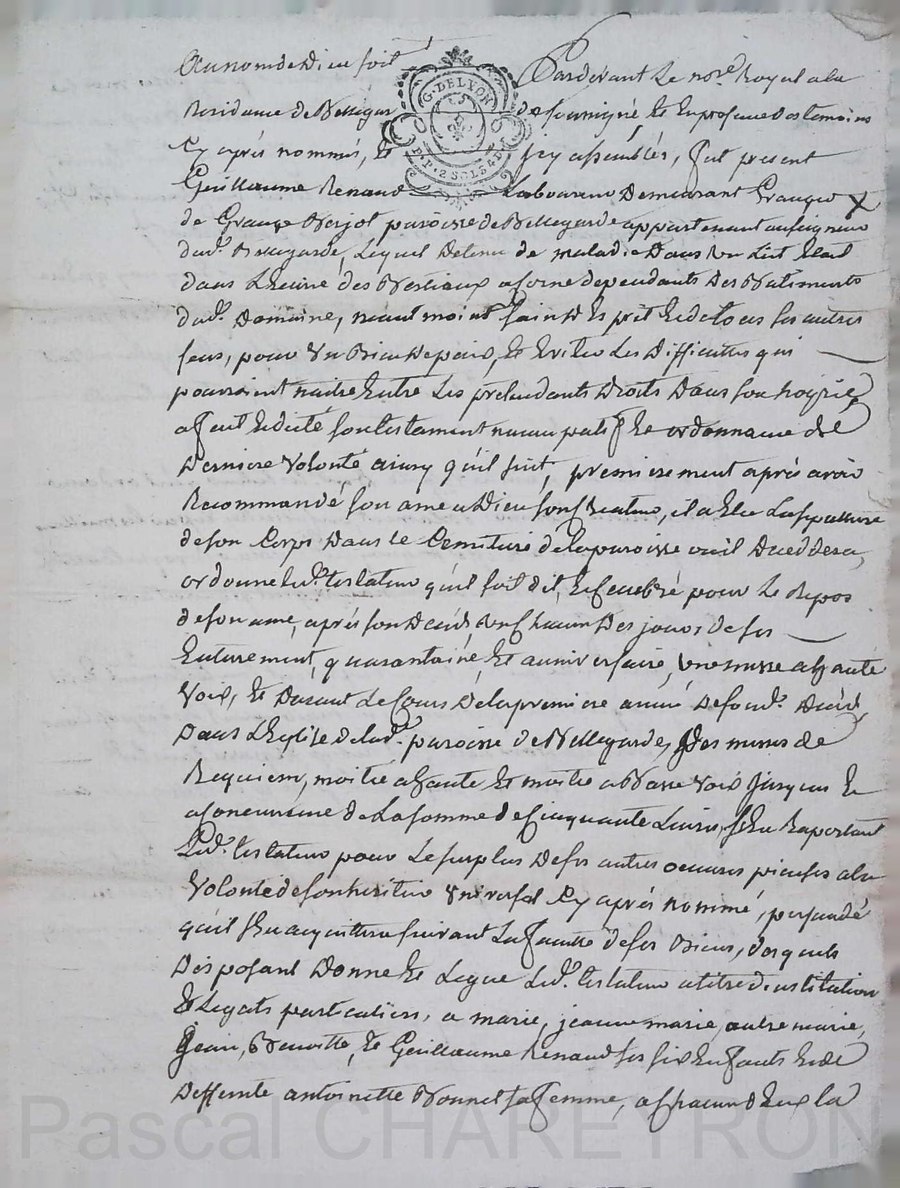 Au nom de Dieu soit Pardevant Le nore. Royal a la
Residance de Bellegarde soussigné Et En presence des temoins
Cy aprés nommés, Et icy assemblés, fut present
Guillaume Renaud Laboureur Demeurant Granger
de Grange Borjot paroisse de Bellegarde appartenant au seigneur
dud. Bellegarde, Lequel Detenu de maladie Dans un Lict Etant
dans L'Ecurie des Bestiaux a corne dependants Des Batiments
dud. Domaine, neantmoins sain d'Esprit Et de tous ses autres
sens, pour Un Bien de paix, Et Eviter Les Difficultés qui
pourroient naitre Entre Les pretendants Droits Dans son hoyrie
a fait Et dicté son testament nuncupatif Et ordonnance de
Derniere Volonté ainsy qu'il suit, premierement aprés avoir
Recommandé son ame a Dieu son Createur, il a Elu La sepulture
de son Corps Dans Le Cemitiere de la paroisse ou il Deceddera,
ordonne Led. testateur qu'il soit dit, Et celebré pour Le Repos
de son ame, aprés son Decés En Chacun Des jours de ses
Enterrement, quarantaine, Et anniversaire, une messe a haute
Voix, Et Durant Le Cours De la premiere année De sond. Decés,
Dans L'Eglise de lad. paroisse de Bellegarde, Des messes de
Requiem, moitié a haute Et moitié a Basse Voix Jusques Et
a concurrence de La somme de Cinquante Livres, S'En Raportant
Led. testateur pour Le surplus De ses autres oeuvres pieuses a la
Volonté de son heritier Universel Cy aprés nommé, persuadé
qu'il S'En acquittera suivant La faculté de ses Biens, desquels
Disposant Donne Et Legue Led. testateur a titre d'institution
Et Legats particuliers, a marie, jeanne marie, autre marie,
Jean, Benoitte, Et Guillaume Renaud ses six Enfants Et de
Deffunte antoinette Bonnet sa femme, a chacun d'Eux la
G. DELYON
2 SOLS 4 D
Pascal CHAREYRON